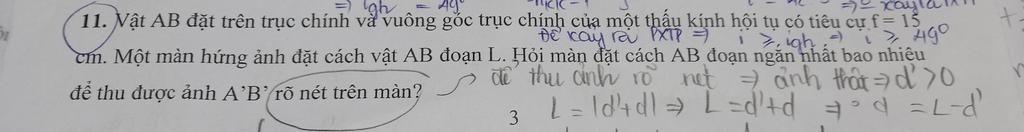 ⇒ igh = 49°
11. Vật AB đặt trên trục chính và vuông góc trục chính của một thấu kính hội tụ có tiêu cự f = 15
Để xảy ra PXTP ⇒ i ≥ igh ⇒ i ≥ 49°
cm. Một màn hứng ảnh đặt cách vật AB đoạn L. Hỏi màn đặt cách AB đoạn ngắn nhất bao nhiêu
để thu ảnh rõ nét ⇒ ảnh thật ⇒ d' > 0
để thu được ảnh A'B' rõ nét trên màn?
L = |d'+d| ⇒ L = d'+d ⇒ d = L-d'
3